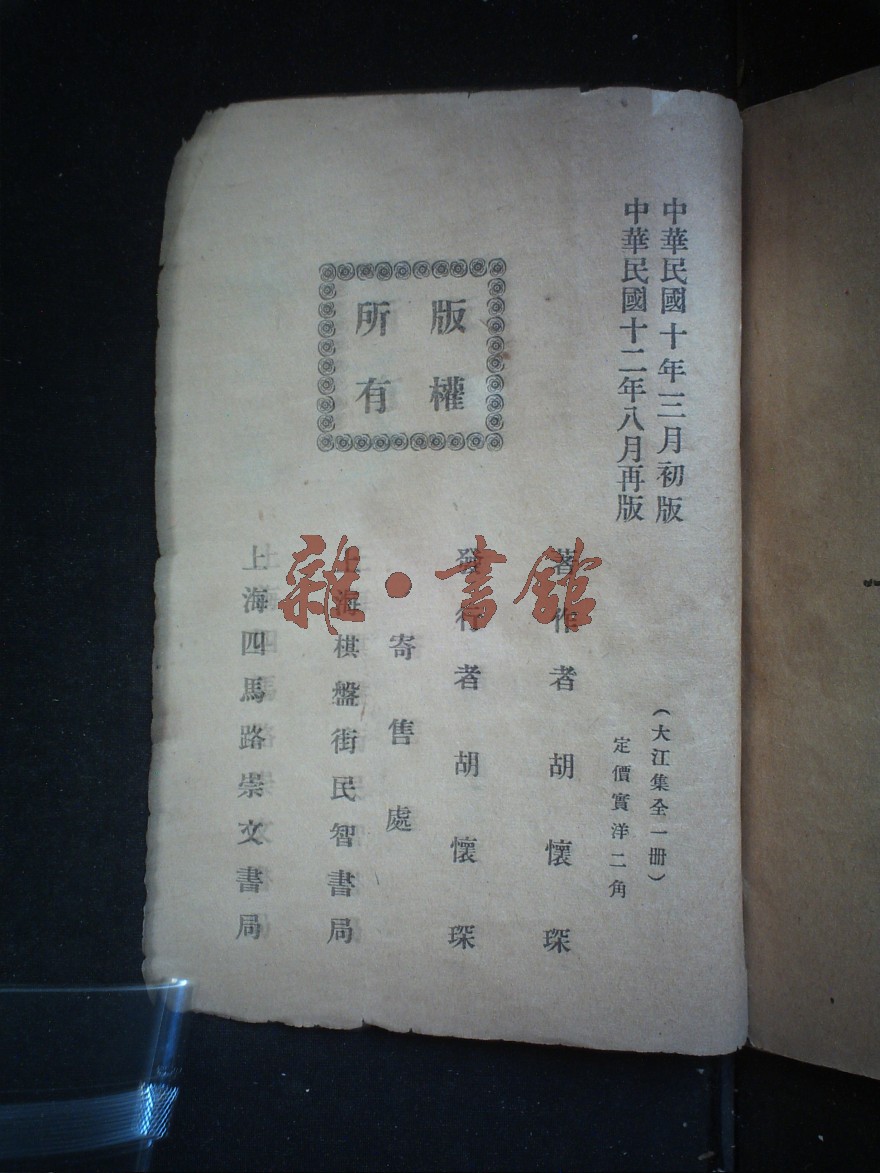 中華民國十年三月初版
中華民國十二年八月再版
（大江集全一册）
定價實洋二角
著作者胡懷琛
發行者胡懷琛
寄售處
上海棋盤街民智書局
上海四馬路崇文書局
版權
所有
雜·書館